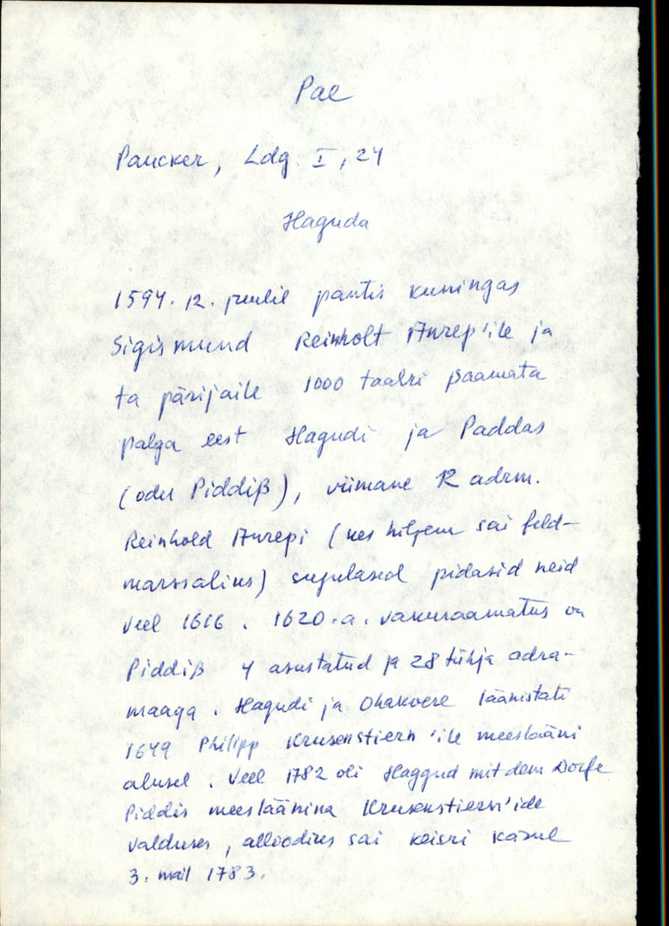 Pae
Paucker, Ldg. I, 24
Haguda
1594. 12. juulil pantis kuningas
Sigismund Reinholt Anrep'ile ja
ta pärijaile 1000 taalri saamata
palga eest Hagudi ja Paddas
(oder Piddiß), viimane 12 adrm.
Reinhold Anrepi (kes hiljem sai feld-
marssaliks) sugulased pidasid neid
veel 1616. 1620. a. vakuraamatus on
Piddiß 4 asustatud ja 28 tühja adra-
maaga. Hagudi ja Ohakvere läänistati
1649 Philipp Krusenstiern'ile meeslääni
alusel. Veel 1782 oli Haggud mit dem Dorfe
Piddis meesläänina Krusenstiern'ide
valduses, alloodiks sai keisri käsul
3. mail 1783.